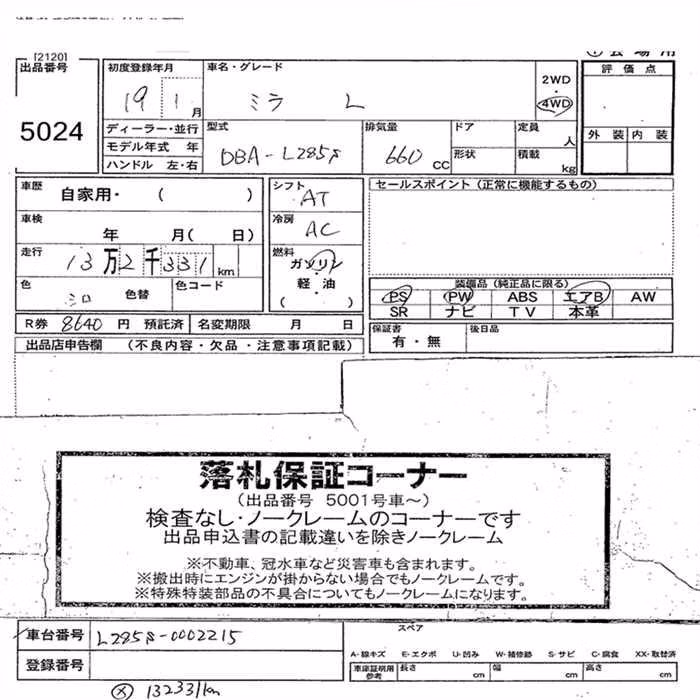 [2120]
出品番号
5024
初度登録年月
19 1 月
車名・グレード
ミラ L
2WD
・
4WD
評価点
外装 内装
ディーラー・並行
モデル年式 年
ハンドル 左・右
型式
DBA-L285S
排気量
660 CC
ドア
形状
定員
人
積載
kg
車歴
自家用・ ( )
車検
年 月( 日)
走行
13万2千331km
色
シロ
色替
色コード
シフト
AT
冷房
AC
燃料
ガソリン
軽・油
( ・ )
セールスポイント (正常に機能するもの)
装備品 (純正品に限る)
PS PW ABS エアB AW
SR ナビ TV 本革
R券 8640 円 預託済 名変期限 月 日
保証書
有・無
後日品
出品店申告欄 (不良内容・欠品・注意事項記載)
落札保証コーナー
(出品番号 5001号車～)
検査なし・ノークレームのコーナーです
出品申込書の記載違いを除きノークレーム
※不動車、冠水車など災害車も含まれます。
※搬出時にエンジンが掛からない場合でもノークレームです。
※特殊特装部品の不具合についてもノークレームになります。
車台番号 L285S-0002215
登録番号
スペア
A-線キズ E-エクボ U-凹み W-補修跡 S-サビ C-腐食 XX-取替済
車庫証明用
参考
長さ cm 幅 cm 高さ cm
132331km